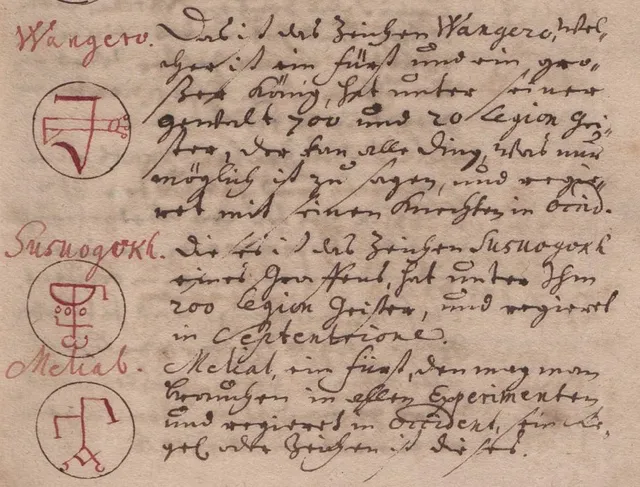 Wangero.
Das ist das Zeichen Wangero, wel-
cher ist ein fürst und ein gro-
ßer König, hat unter seiner
gewalt 700 und 20 Legion Gei-
ster, der kan alle ding, was nur
möglich ist zu sagen, und regie-
ret mit seinen Knechten in Occid.
Susuogokh.
Die es ist das Zeichen Susuogokh
eines Graffens, hat unter Ihm
200 Legion Geister, und regieret
in Septentrione.
Melial.
Melial, ein fürst, den mag man
brauchen in allen Experimenten
und regieret in Occident, sein Sie-
gel oder Zeichen ist dieses.